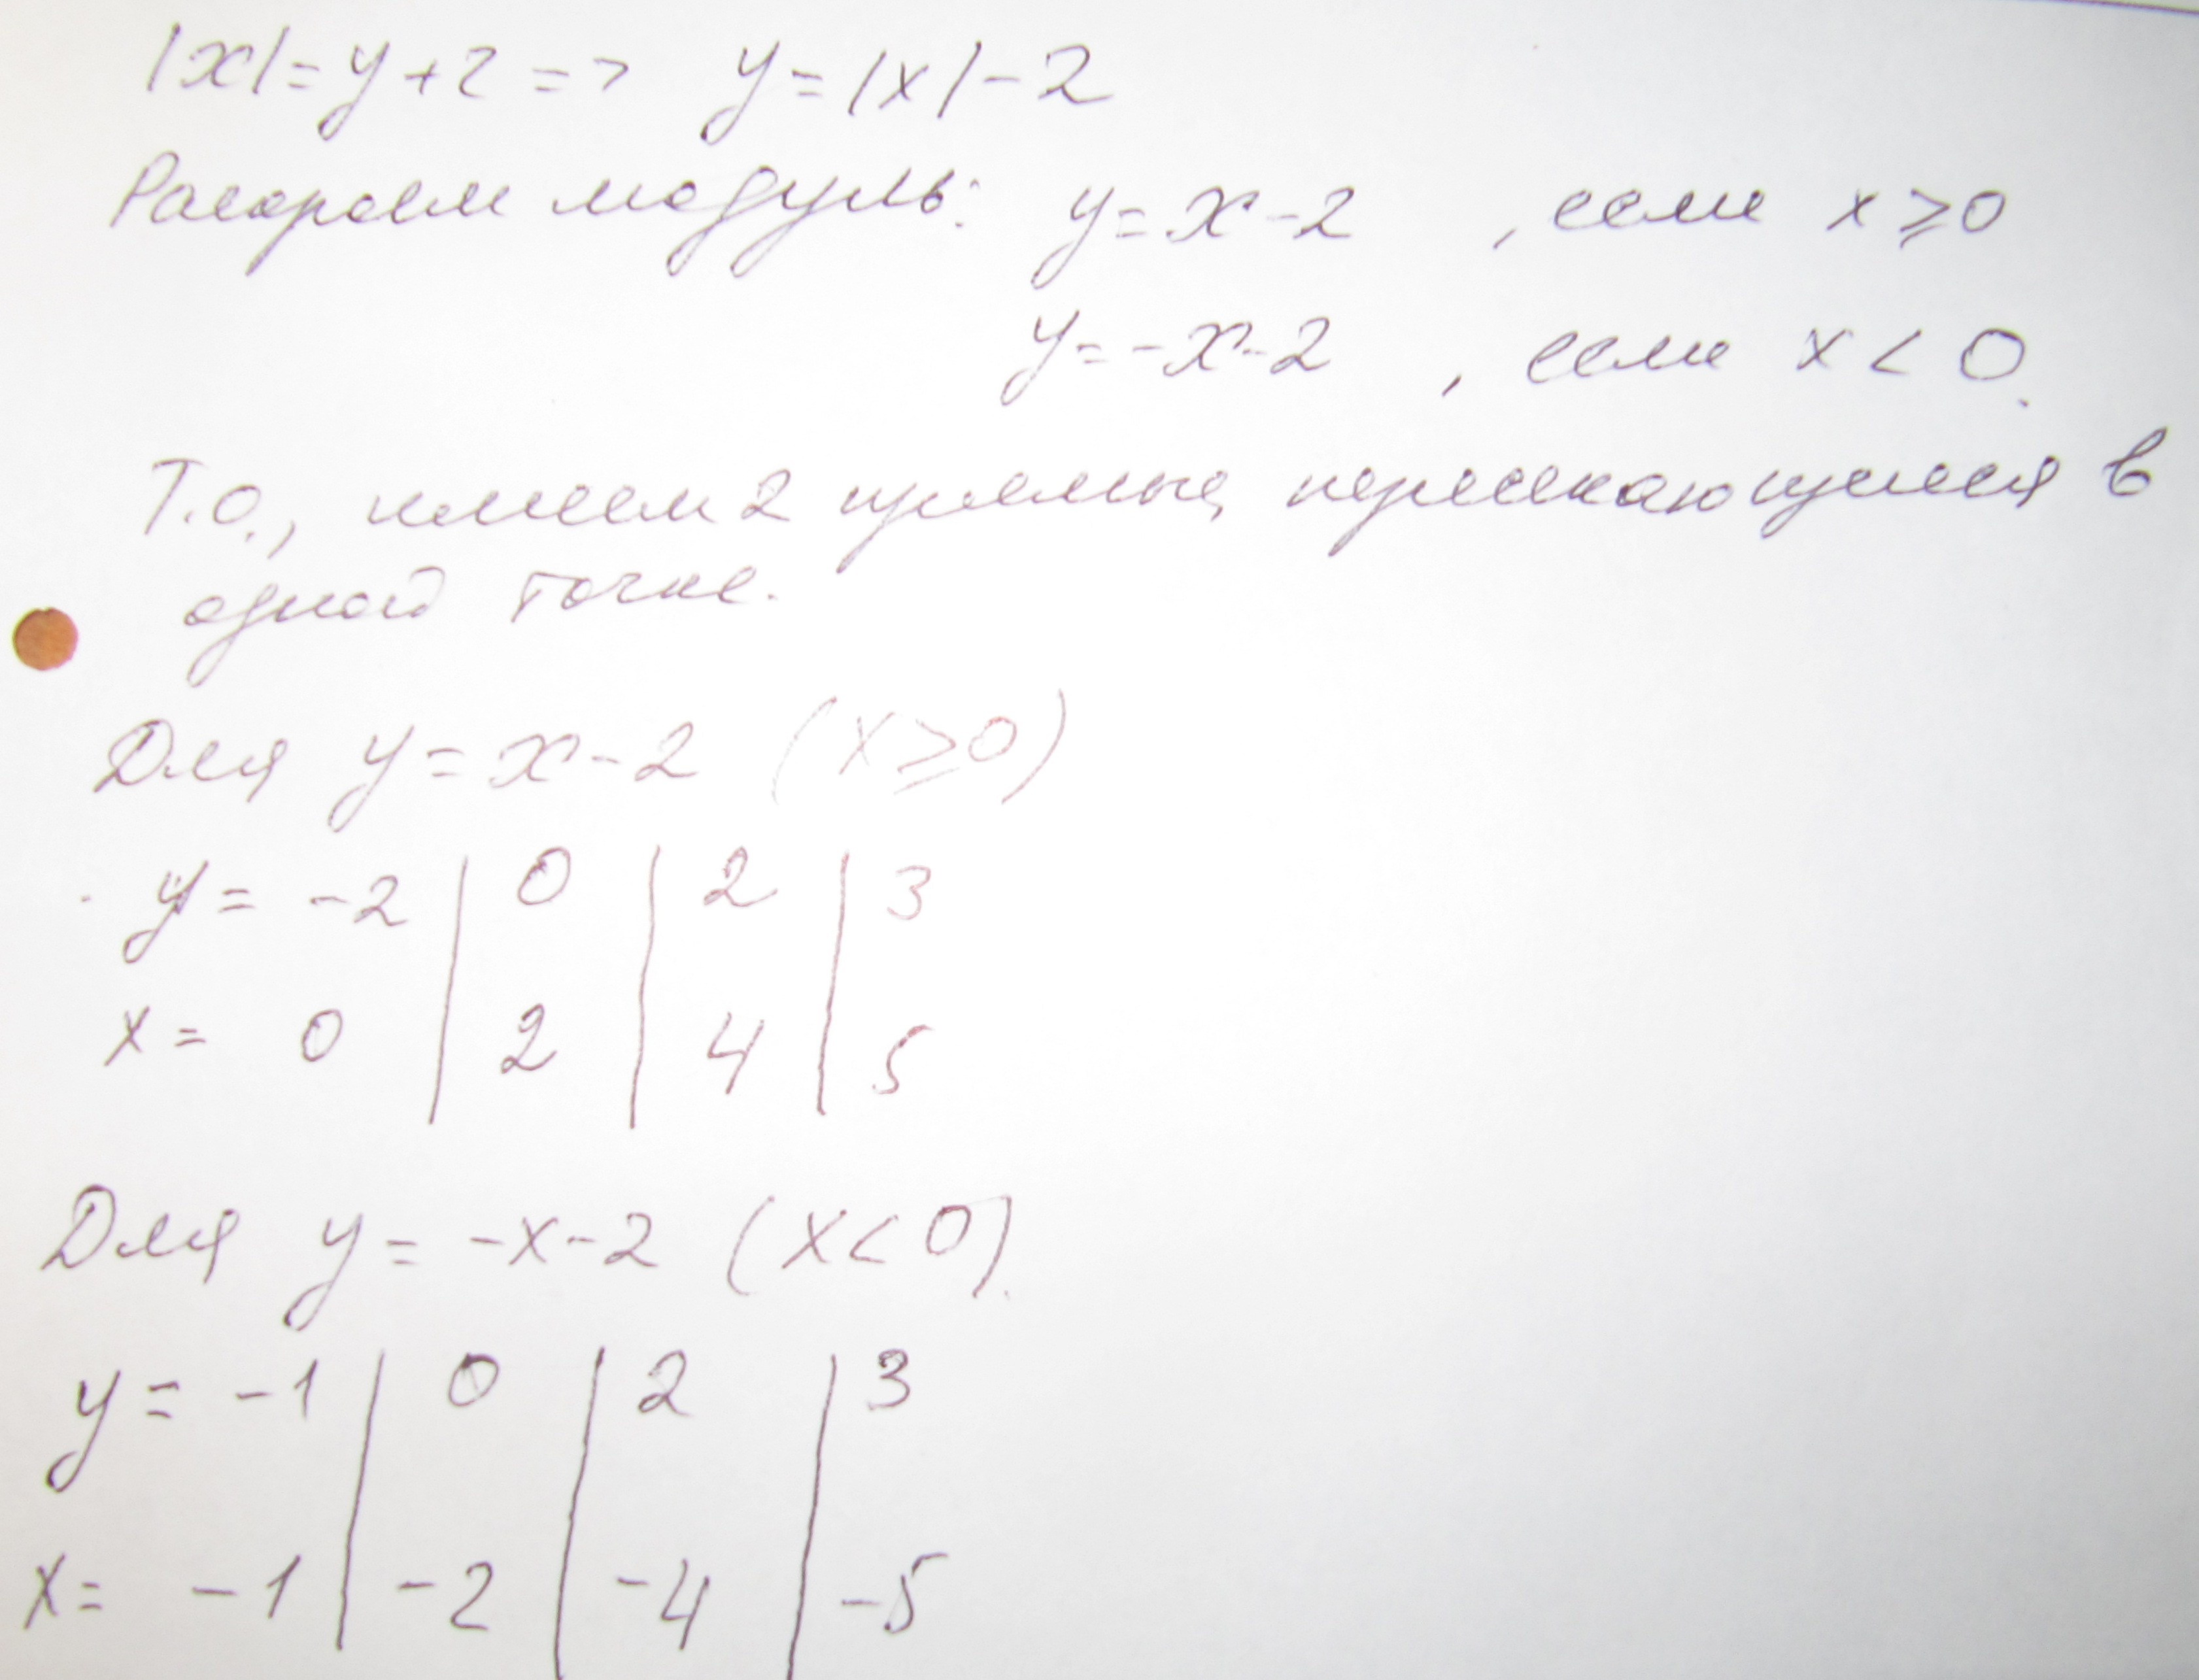 |x|=y+2 => y=|x|-2
Раскроем модуль: y=x-2 , если x≥0
y=-x-2 , если x<0.
Т.О., имеем 2 прямые, пересекающиеся в
одной точке.
Для y=x-2 (x≥0)
y= -2 | 0 | 2 | 3
x= 0 | 2 | 4 | 5
Для y=-x-2 (x<0).
y= -1 | 0 | 2 | 3
x= -1 | -2 | -4 | -5